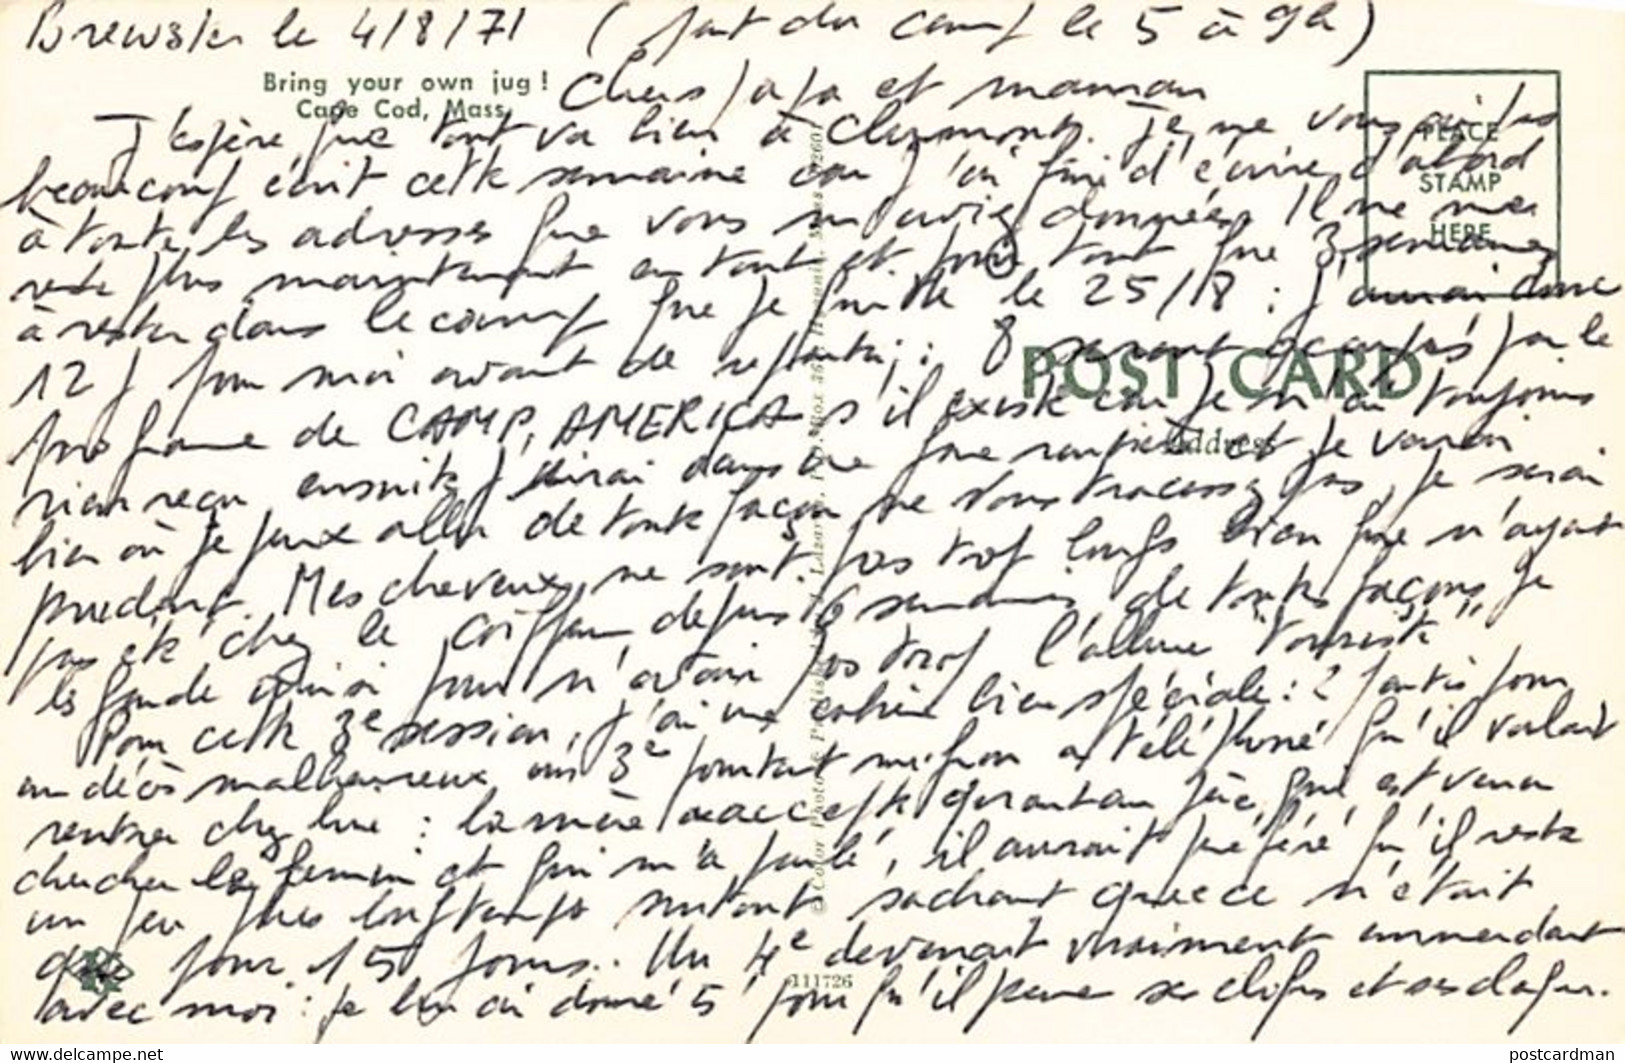 Brewster le 4/8/71 (part du camp le 5 à 9h)
Bring your own jug!
Cape Cod, Mass.
Chers papa et maman
J'espère que tout va bien à Clermont. Je ne vous ai pas
beaucoup écrit cette semaine car j'ai fini d'écrire d'abord
à toutes les adresses que vous m'aviez données. Il ne me
reste plus maintenant en tout et pour tout que 3 semaines
à rester dans le camp que je quitte le 25/8 : j'aurai donc
12 j pour moi avant de repartir ; 8 seront occupés par le
programme de CAMP AMERICA s'il existe car je n'ai toujours
rien reçu ensuite j'irai dans une et je verrai
bien où je peux aller de toute façon ne vous tracassez pas, je serai
prudent. Mes cheveux ne sont pas trop longs bien que n'ayant
pas été chez le coiffeur depuis 6 semaines de toutes façons je
les garde ainsi pour n'avoir pas trop l'allure "touriste"
Pour cette 3e session, j'ai une cabine bien spéciale : 2 partis pour
un décès malheureux un 3e pourtant mignon a téléphoné qu'il voulait
rentrer chez lui : la mère a accepté quant au père, qui est venu
chercher le gamin et qui m'a parlé, il aurait préféré qu'il reste
un peu plus longtemps surtout sachant que ce n'était
que pour 15 jours.. Un 4e devenait vraiment emmerdant
avec moi : je lui ai donné 5 pour qu'il prenne ses cliques et ses claques.
PLACE
STAMP
HERE
POST CARD
Address
111726
www.delcampe.net
postcardman